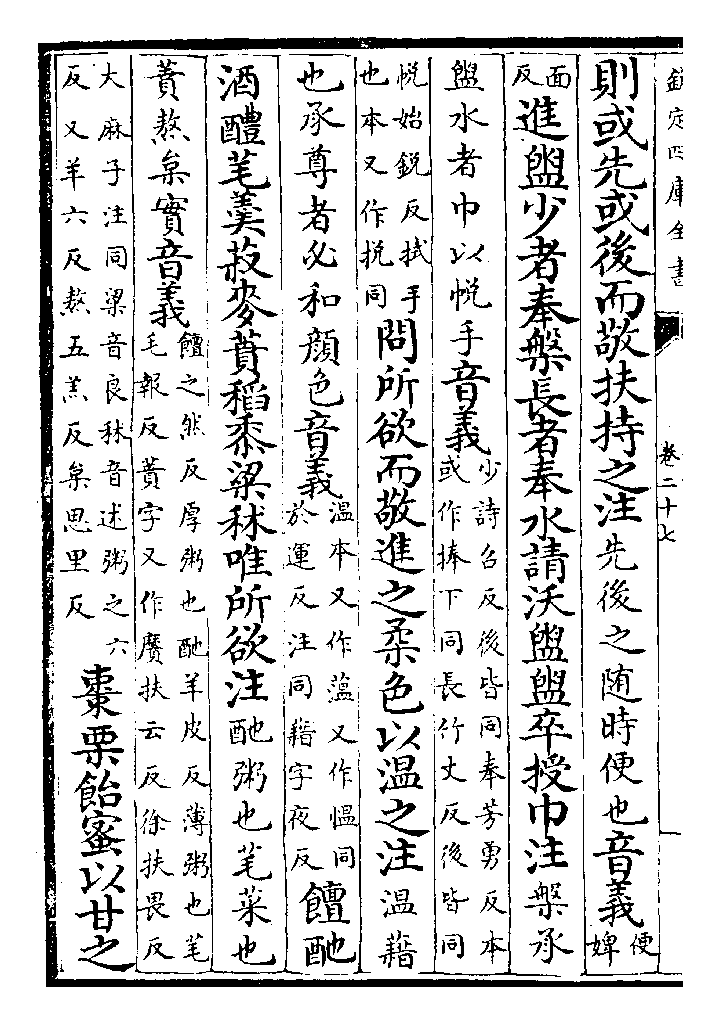 欽定四庫全書 卷二十七
則或先或後而敬扶持之注先後之随時便也音義便婢
面反進盥少者奉槃長者奉水請沃盥盥卒授巾注槃承
盥水者巾以帨手音義少詩召反後皆同奉芳勇反本或作捧下同長竹丈反後皆同
帨始銳反拭手也本又作挩同問所欲而敬進之柔色以温之注温藉
也承尊者必和顔色音義温本又作薀又作愠同於運反注同藉字夜反饘酏
酒醴芼羮菽麥蕡稻黍粱秫唯所欲注酏粥也芼菜也
蕡熬枲實音義饘之然反厚粥也酏羊皮反薄粥也芼毛報反蕡字又作黂扶云反徐扶畏反
大麻子注同粱音良秫音述粥之六反又羊六反熬五羔反枲思里反棗栗飴蜜以甘之